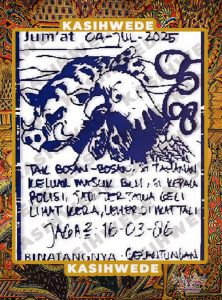 KASIHWEDE
Jum'at 04-JUL-2025
TAK BOSAN-BOSAN, SI TAHANAN
KELUAR MASUK BUI, SI KEPALA
POLISI, SATU TERTAWA GELI
LIHAT KERA, LEHER DI IKAT TALI
JAGA2: 16-03-86
BINATANGNYA BERGANTUNGAN
KASIHWEDE